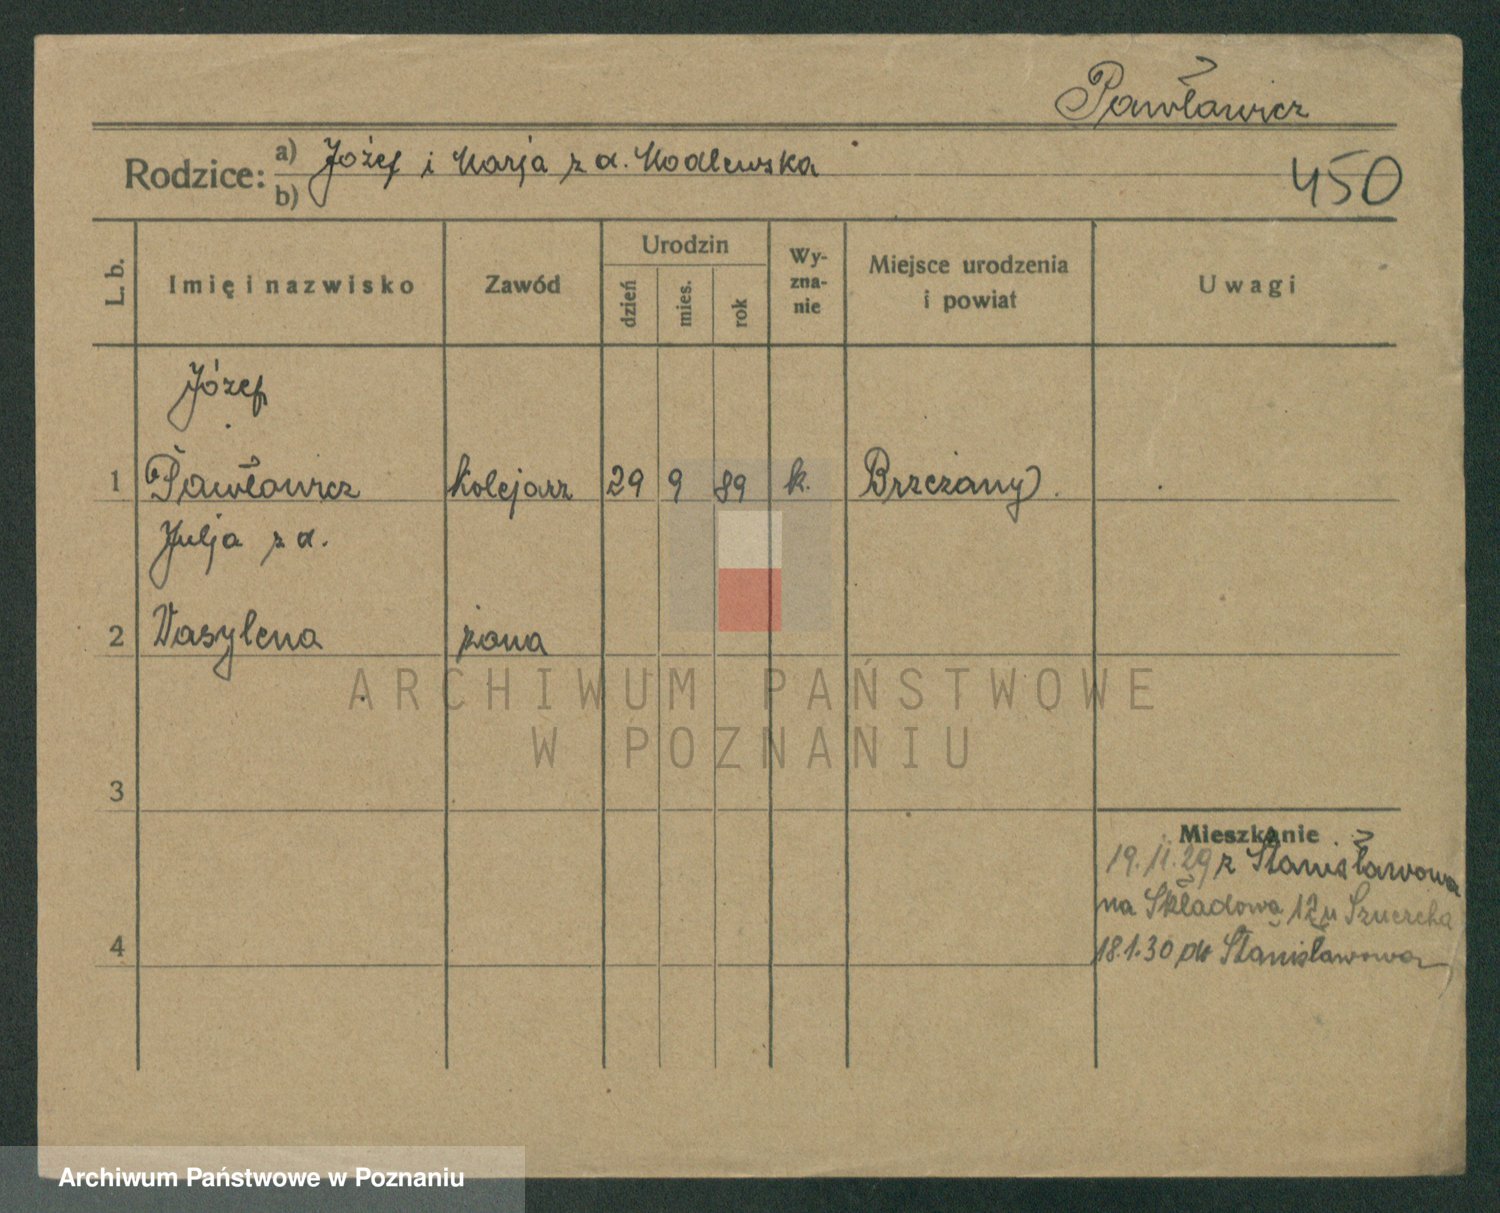 Pawławicz
Rodzice: a) Józef i Marja z d. Modlewska
b)
450
L. b.
Imię i nazwisko
Zawód
Urodzin
dzień
mies.
rok
Wy-
zna-
nie
Miejsce urodzenia
i powiat
Uwagi
Józef
1 Pawłowicz kolejarz 29 9 89 k. Brzeżany
Julja z d.
2 Wasylena żona
3
Mieszkanie
19.11.29 z Stanisławowa
na Składową 12 u
4 18.1.30 do Stanisławowa
ARCHIWUM PAŃSTWOWE
W POZNANIU
Archiwum Państwowe w Poznaniu